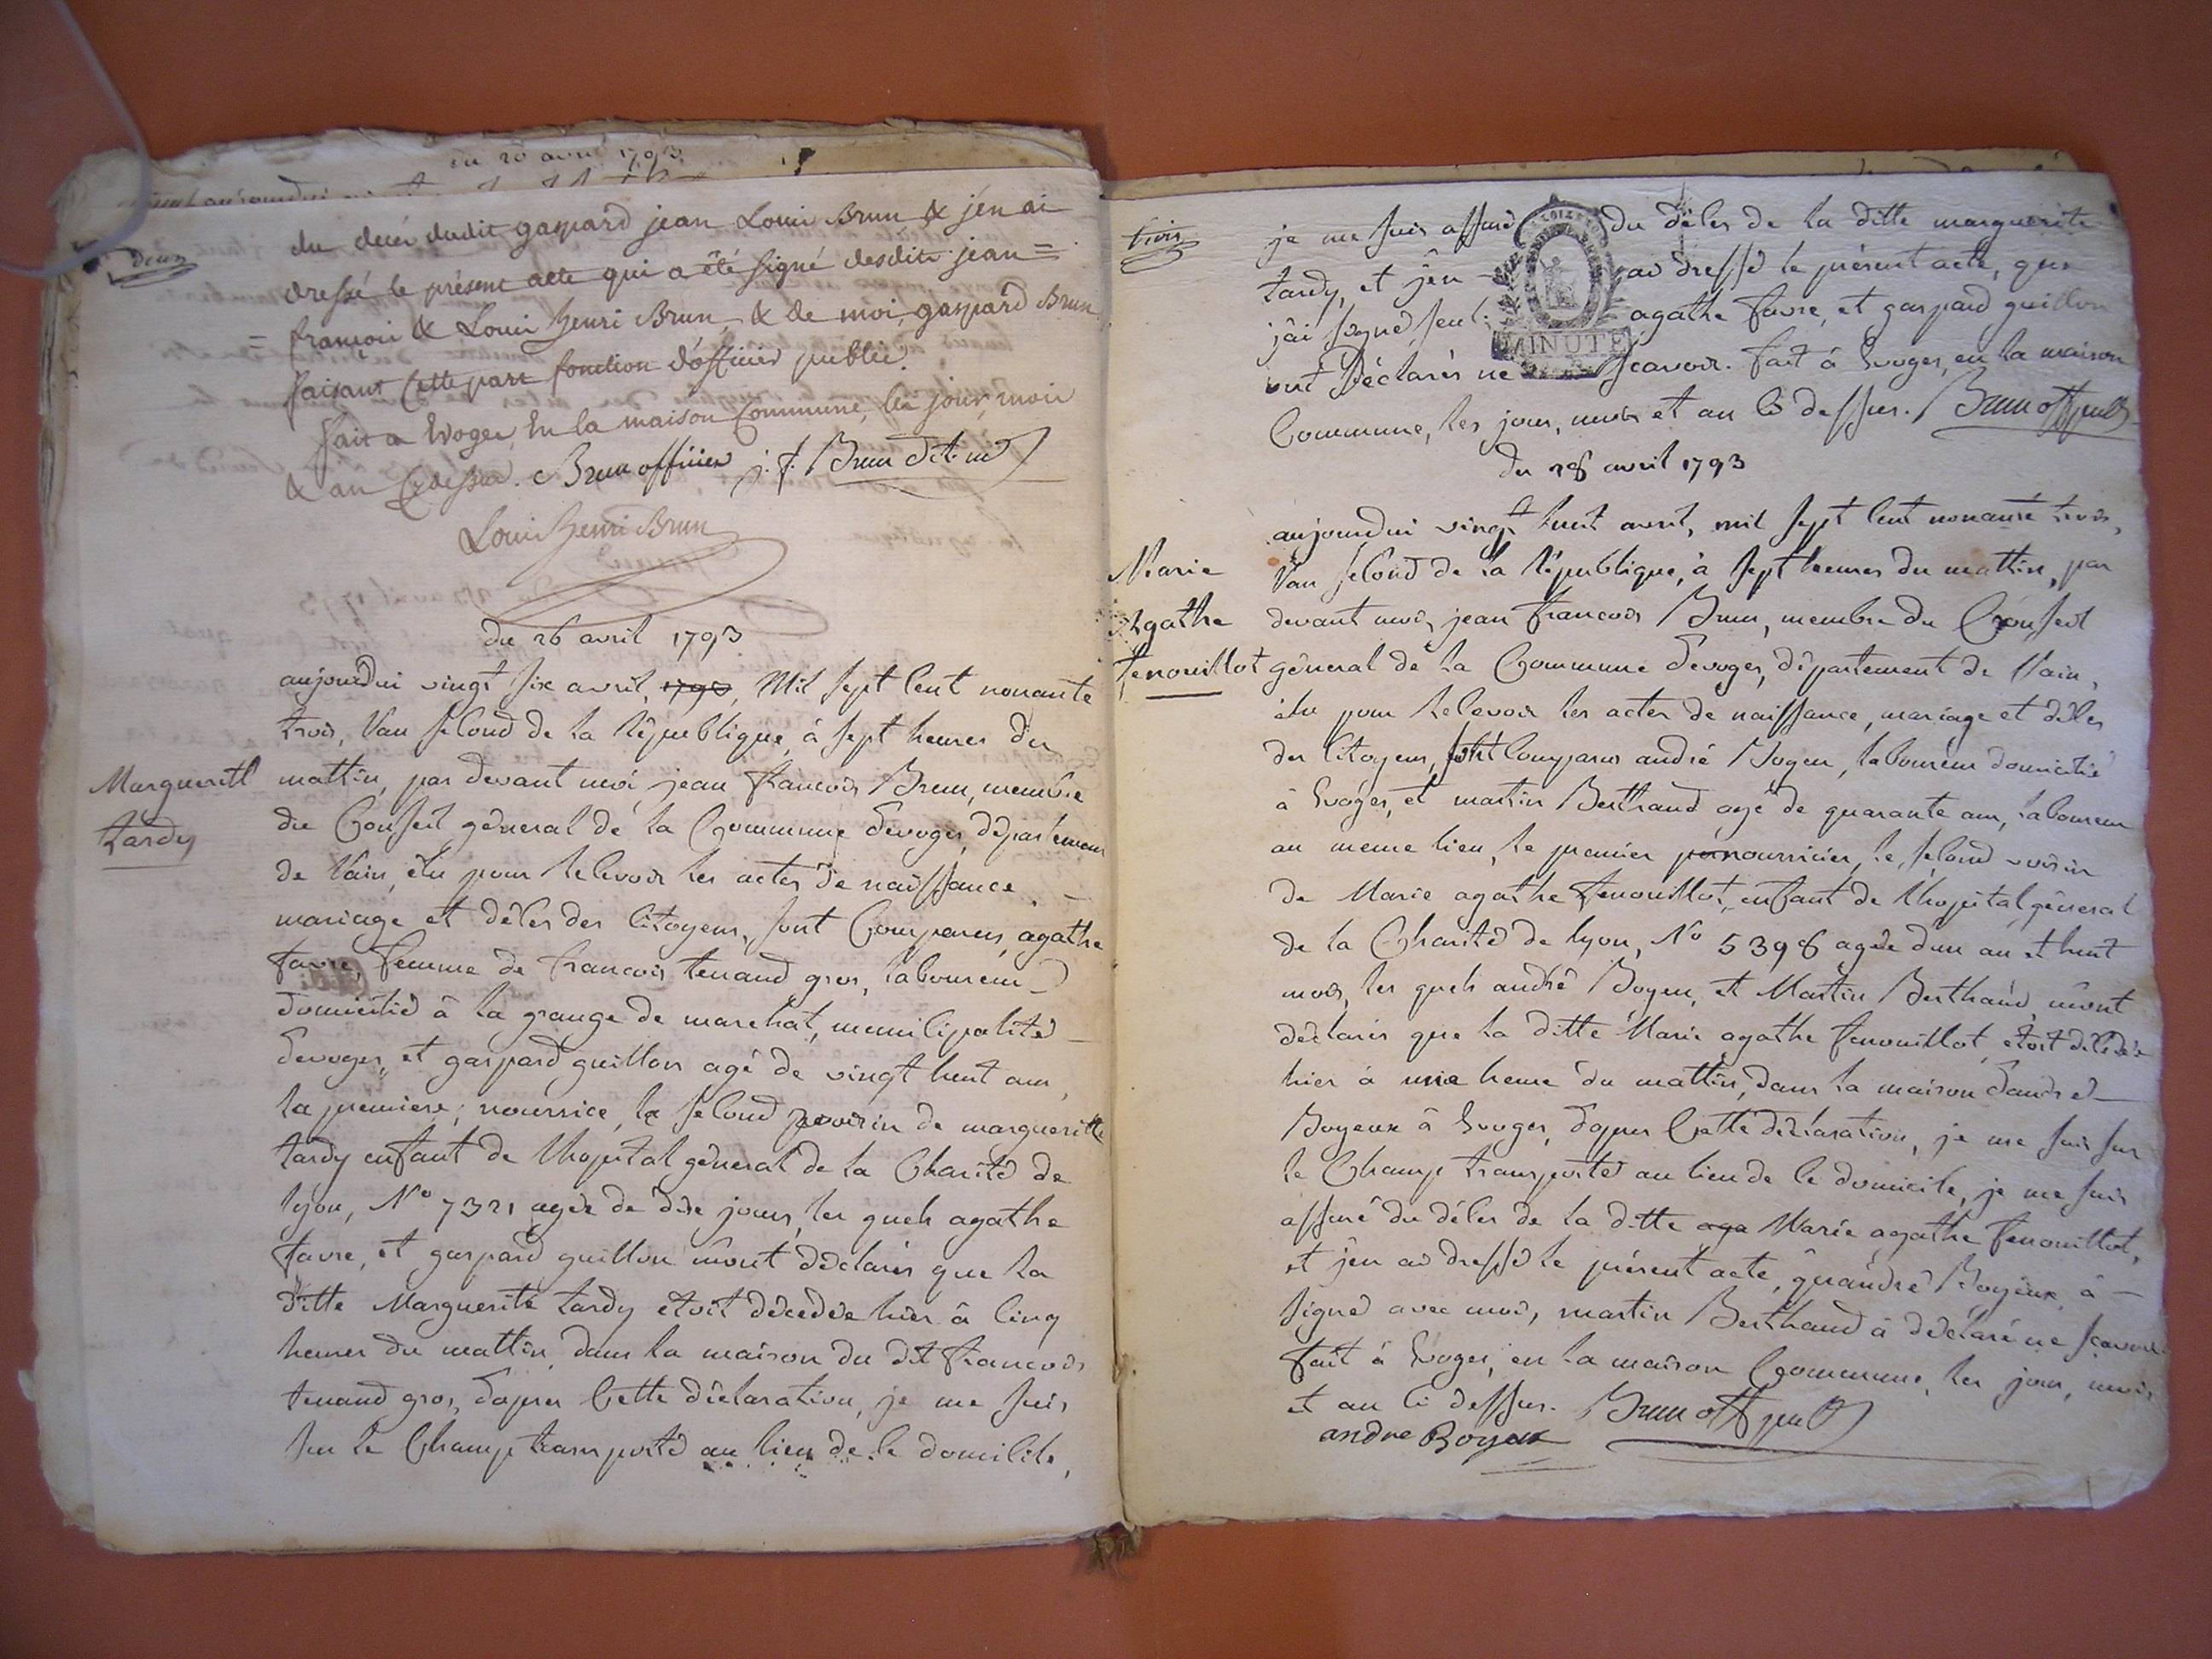 du 20 avril 1793
deux
du decés dudit gaspard jean Louis Brun & j'en ai
dressé le présent acte qui a été signé desdits jean =
= françois & Louis henri Brun, & de moi, gaspard Brun
faisant cette part fonction d'officier public.
fait a Evoges, En la maison Commune, les jour, mois
& an Cydessus. Brun officier j. f. Brun
Louis henri Brun
du 26 avril 1793
aujourdui vingt six avril, 1793, Mil sept cent nonante
trois, l'an second de la République, à sept heures du
Margueritte
tardy
mattin, par devant moi jean francois Brun, membre
du Conseil géneral de la Commune d'evoges, département
de l'ain, élu pour recevoir les actes de naissance
mariage et décès des citoyens, sont Comparus, agathe
favre, femme de francois tenand gros, laboureur
domicilié à la grange de marchat, municipalité
d'evoges, et gaspard guillon agé de vingt huit ans
la premiere, nourrice, le second voisin de margueritte
tardy enfant de l'hopital géneral de la Charité de
lyon, N° 7321 agée de dix jours, les quels agathe
favre, et gaspard guillon m'ont déclarés que la
ditte Marguerite tardy etoit décedée hier à cinq
heures du mattin dans la maison du dit francois
tenand gros, d'apres cette déclaration, je me suis
sur le Champ transporté au lieu de ce domicile,
trois
je me suis assuré du décès de la ditte marguerite
tardy, et j'en ai dressé le présent acte, que
j'ai signé seul: agathe favre, et gaspard guillon
ont déclarés ne scavoir. fait à Evoges, en la maison
MINUTE
Commune, les jour, mois et an ci dessus. Brun off pub
du 28 avril 1793
aujourdui vingt huit avril, mil sept cent nonante trois,
Marie
Agathe
fenouillot
l'an second de la République, à sept heures du mattin, par
devant moi, jean francois Brun, membre du Conseil
géneral de la Commune d'evoges, département de l'ain,
élu pour recevoir les actes de naissance, mariage et décès
des citoyens, sont comparus andré Boyeu, laboureur domicilié
à Evoges, et martin Berthaud agé de quarante ans, laboureur
au meme lieu, le premier nourricier, le second voisin
de Marie agathe fenouillot, enfant de l'hopital géneral
de la Charité de lyon, N° 5398 agée d'un an et huit
mois, les quels andré Boyeu, et Martin Berthaud, m'ont
déclarés que la ditte Marie agathe fenouillot, etoit décedée
hier à une heure du mattin, dans la maison d'andré
Boyeux à Evoges, d'apres Cette déclaration, je me suis sur
le Champ transporté au lieu de ce domicile, je me suis
assuré du décès de la ditte aga Marie agathe fenouillot,
et j'en ai dressé le présent acte, qu'andré Boyeux à
signé avec moi, martin Berthaud à déclaré ne scavoir.
fait à Evoges, en la maison Commune, les jour, mois
et an ci dessus. Brun off pub
andre Boyeux